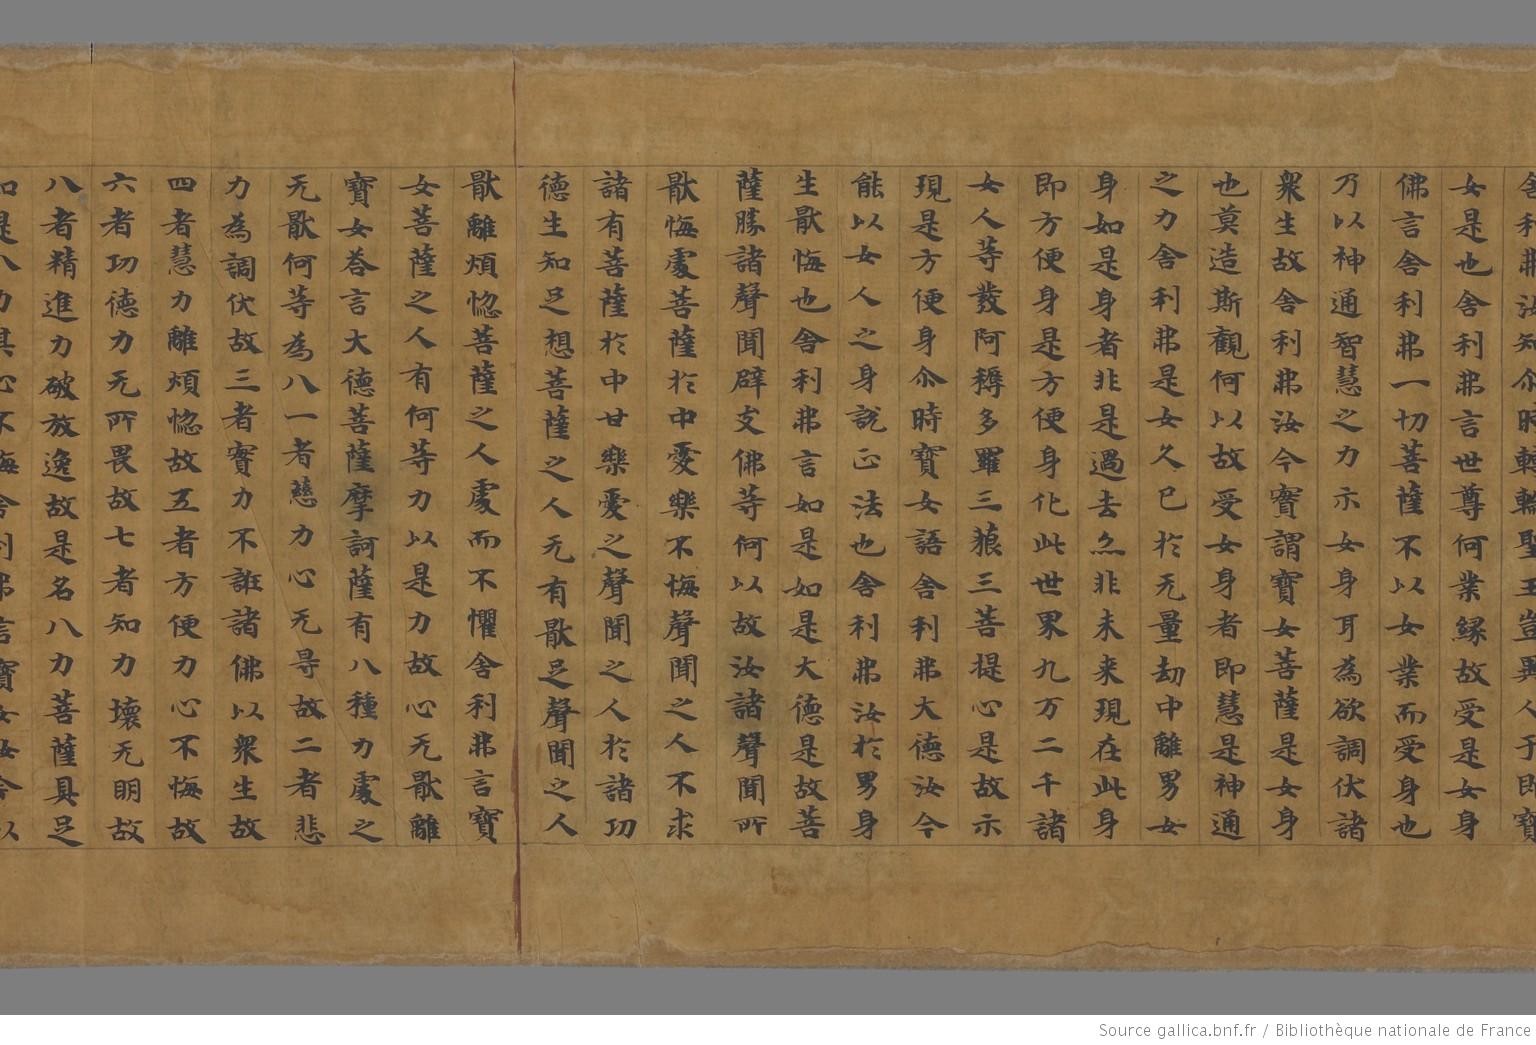 舍利弗汝知尒時轉輪聖王豈異人乎即寶
女是也舍利弗言世尊何業緣故受是女身
佛言舍利弗一切菩薩不以女業而受身也
乃以神通智慧之力示女身耳為欲調伏諸
衆生故舍利弗汝今實謂寶女菩薩是女身
也莫造斯觀何以故受女身者即慧是神通
之力舍利弗是女久已於无量劫中離男女
身如是身者非是過去亦非未来現在此身
即方便身是方便身化此世界九万二千諸
女人等發阿耨多羅三藐三菩提心是故示
現是方便身尒時寶女語舍利弗大德汝今
能以女人之身說正法也舍利弗汝於男身
生猒悔也舍利弗言如是如是大德是故菩
薩勝諸聲聞辟支佛等何以故汝諸聲聞所
猒悔處菩薩於中憂樂不悔聲聞之人不求
諸有菩薩於中甘樂憂之聲聞之人於諸功
德生知足想菩薩之人无有猒足聲聞之人
猒離煩惚菩薩之人處而不懼舍利弗言寶
女菩薩之人有何等力以是力故心无猒離
寶女荅言大德菩薩摩訶薩有八種力處之
无猒何等為八一者慈力心无㝵故二者悲
力為調伏故三者實力不誑諸佛以衆生故
四者慧力離煩惚故五者方便力心不悔故
六者功德力无所畏故七者知力壞无明故
八者精進力破放逸故是名八力菩薩具足
如是八力其心不悔舍利弗言寶女汝今以
Source gallica.bnf.fr / Bibliothèque nationale de France